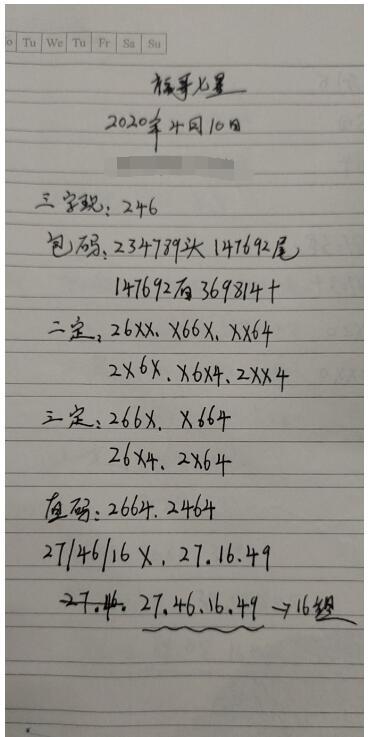 o Tu We Tu Fr Sa Su
福哥七星
2020年4月10日
三字现: 246
包码: 234789头 147692尾
147692百 369814十
二定: 26XX. X66X. XX64
2X6X. X6X4. 2XX4
三定: 266X. X664
26X4. 2X64
直码: 2664. 2464
27/46/16 X. 27.16.49
27.46. 27.46.16.49 → 16组